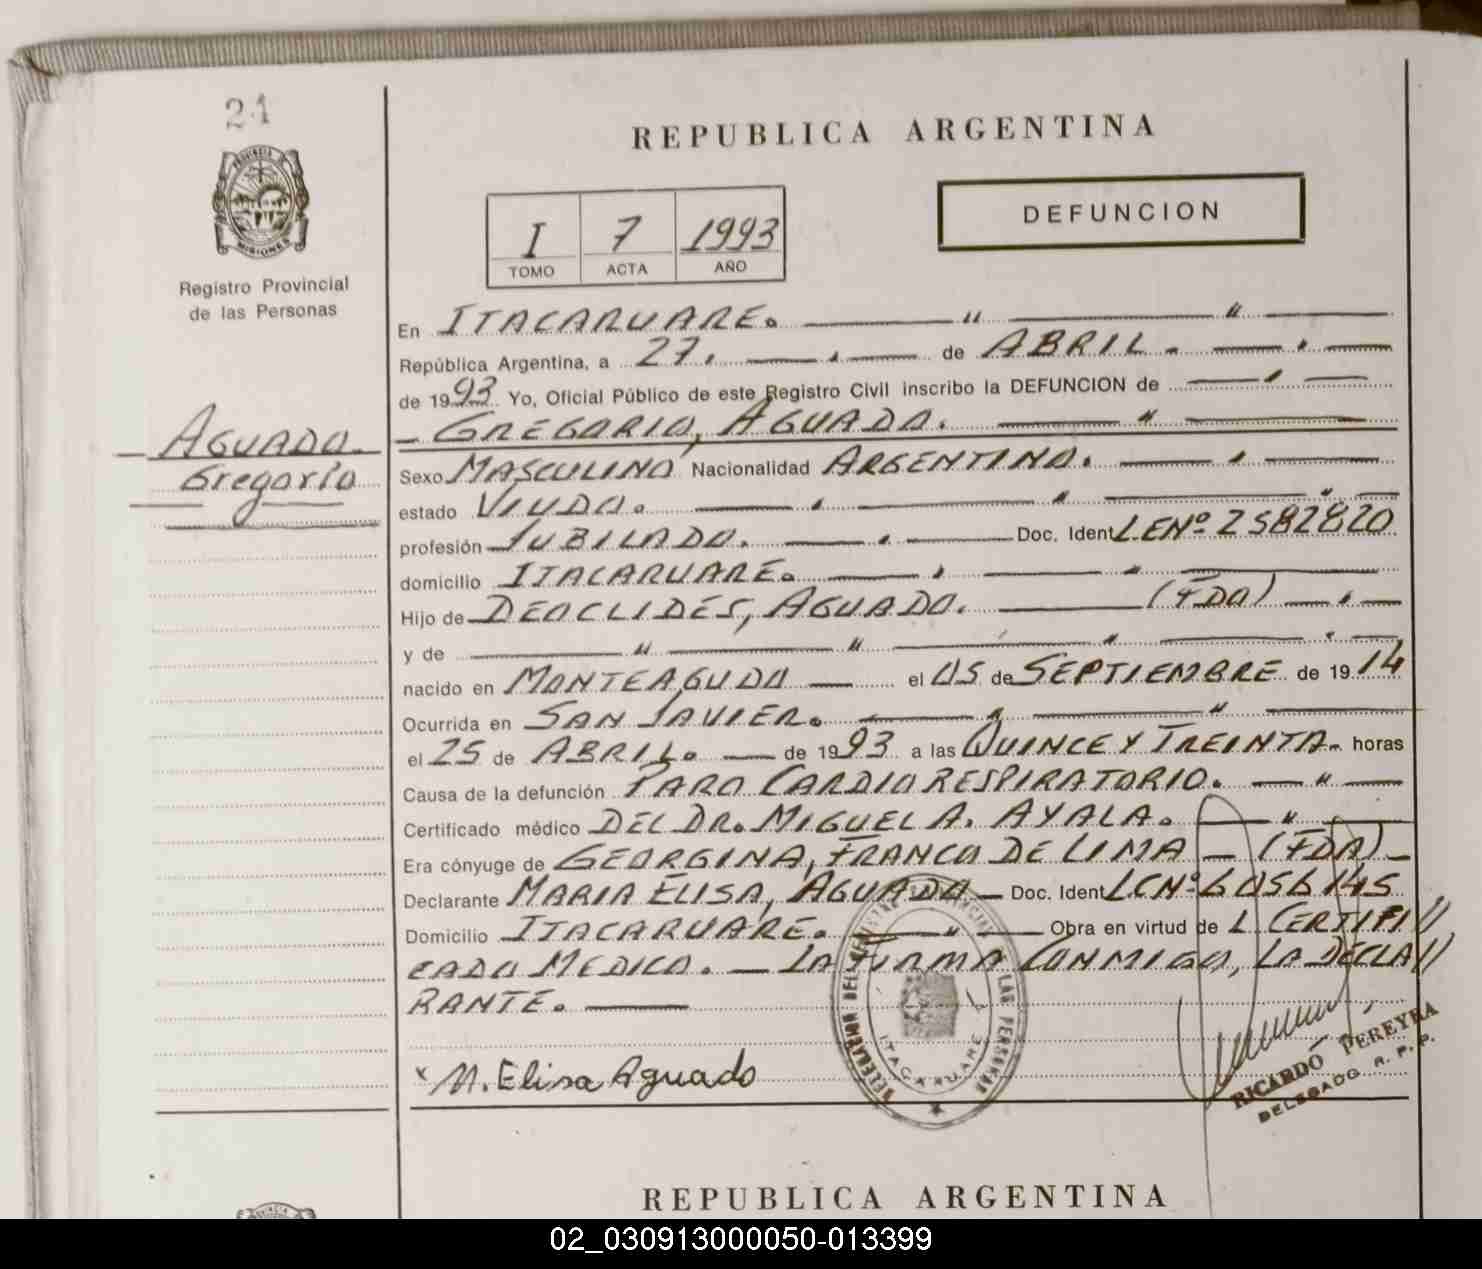 21
REPUBLICA ARGENTINA
PROVINCIA DE
MISIONES
Registro Provincial
de las Personas
I 7 1993
TOMO ACTA AÑO
DEFUNCION
En ITACARUARE. " "
República Argentina, a 27. de ABRIL.
de 1993 Yo, Oficial Público de este Registro Civil inscribo la DEFUNCION de
AGUADO.
Gregorio
GREGORIO, AGUADO. "
Sexo MASCULINO Nacionalidad ARGENTINO.
estado VIUDO.
profesión JUBILADO. Doc. Ident LENº 2582820
domicilio ITACARUARE.
Hijo de DEOCLIDES, AGUADO. (FDO)
y de " "
nacido en MONTEAGUDO el 05 de SEPTIEMBRE de 1914
Ocurrida en SAN JAVIER. "
el 25 de ABRIL. de 1993 a las QUINCE Y TREINTA. horas
Causa de la defunción PARO CARDIORESPIRATORIO. "
Certificado médico DEL DR. MIGUEL A. AYALA. "
Era cónyuge de GEORGINA, FRANCO DE LIMA (FDA)
Declarante MARIA ELISA, AGUADO Doc. Ident LCNº 6056145
Domicilio ITACARUARE. " Obra en virtud de L CERTIFI//
CADO MEDICO. LA FIRMA CONMIGO, LA DECLA//
RANTE.
x M. Elisa Aguado
DELEGACION DEL REGISTRO PROVINCIAL DE LAS PERSONAS
ITACARUARE
RICARDO PEREYRA
DELEGADO R. P. P.
REPUBLICA ARGENTINA
02_030913000050-013399